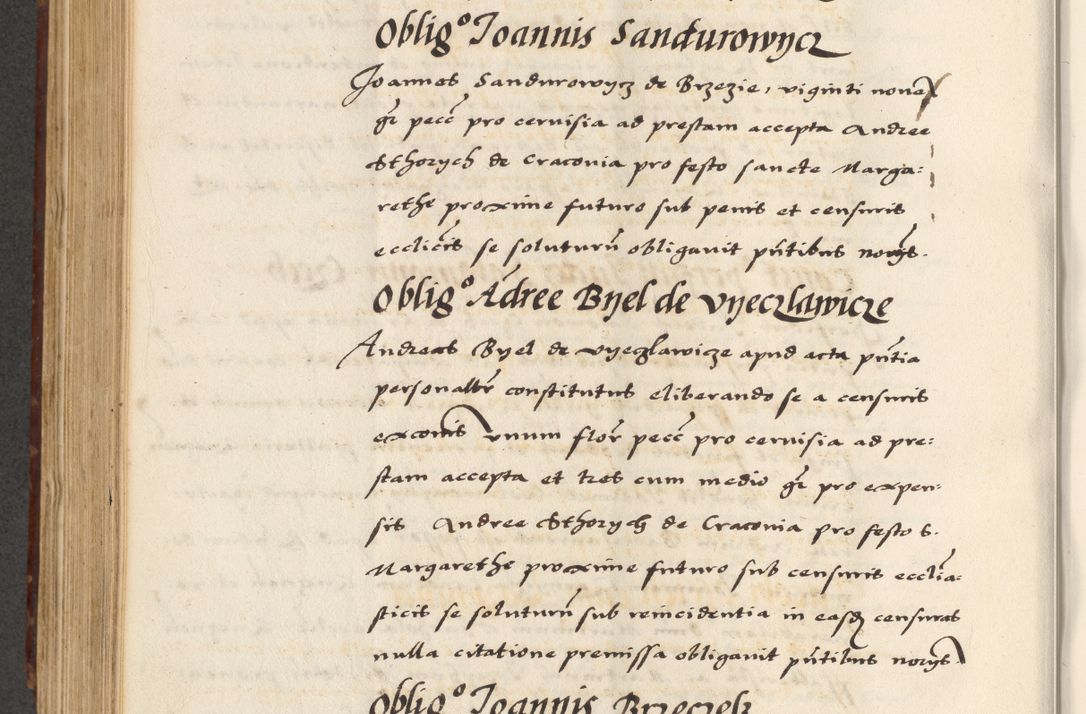 Obligo Ioannis Sandurowycz
Joannes Sandurowycz de Brzezie, viginti novem
gr pecc pro cervisia ad prestam accepta Andree
Sthorzych de Cracovia pro festo sancte Marga:
rethe proxime futuro sub penis et censuris
ecclicis se soluturu obligavit pntibus
Obligo Adree Byel de Vyeczlawicze
Andreas Byel de Vyeczlawicze apud acta pntia
personaltr constitutus eliberando se a censuris
excomis vnum flor pecc pro cervisia ad pre:
stam accepta et tres cum medio gr pro expen:
sis Andree Sthorzych de Cracovia pro festo S.
Margarethe proxime futuro sub censuris ecclia:
sticis se soluturu sub reincidentia in easd censuras
nulla citatione premissa obligavit pntibus
Obligo Ioannis Brzeczek